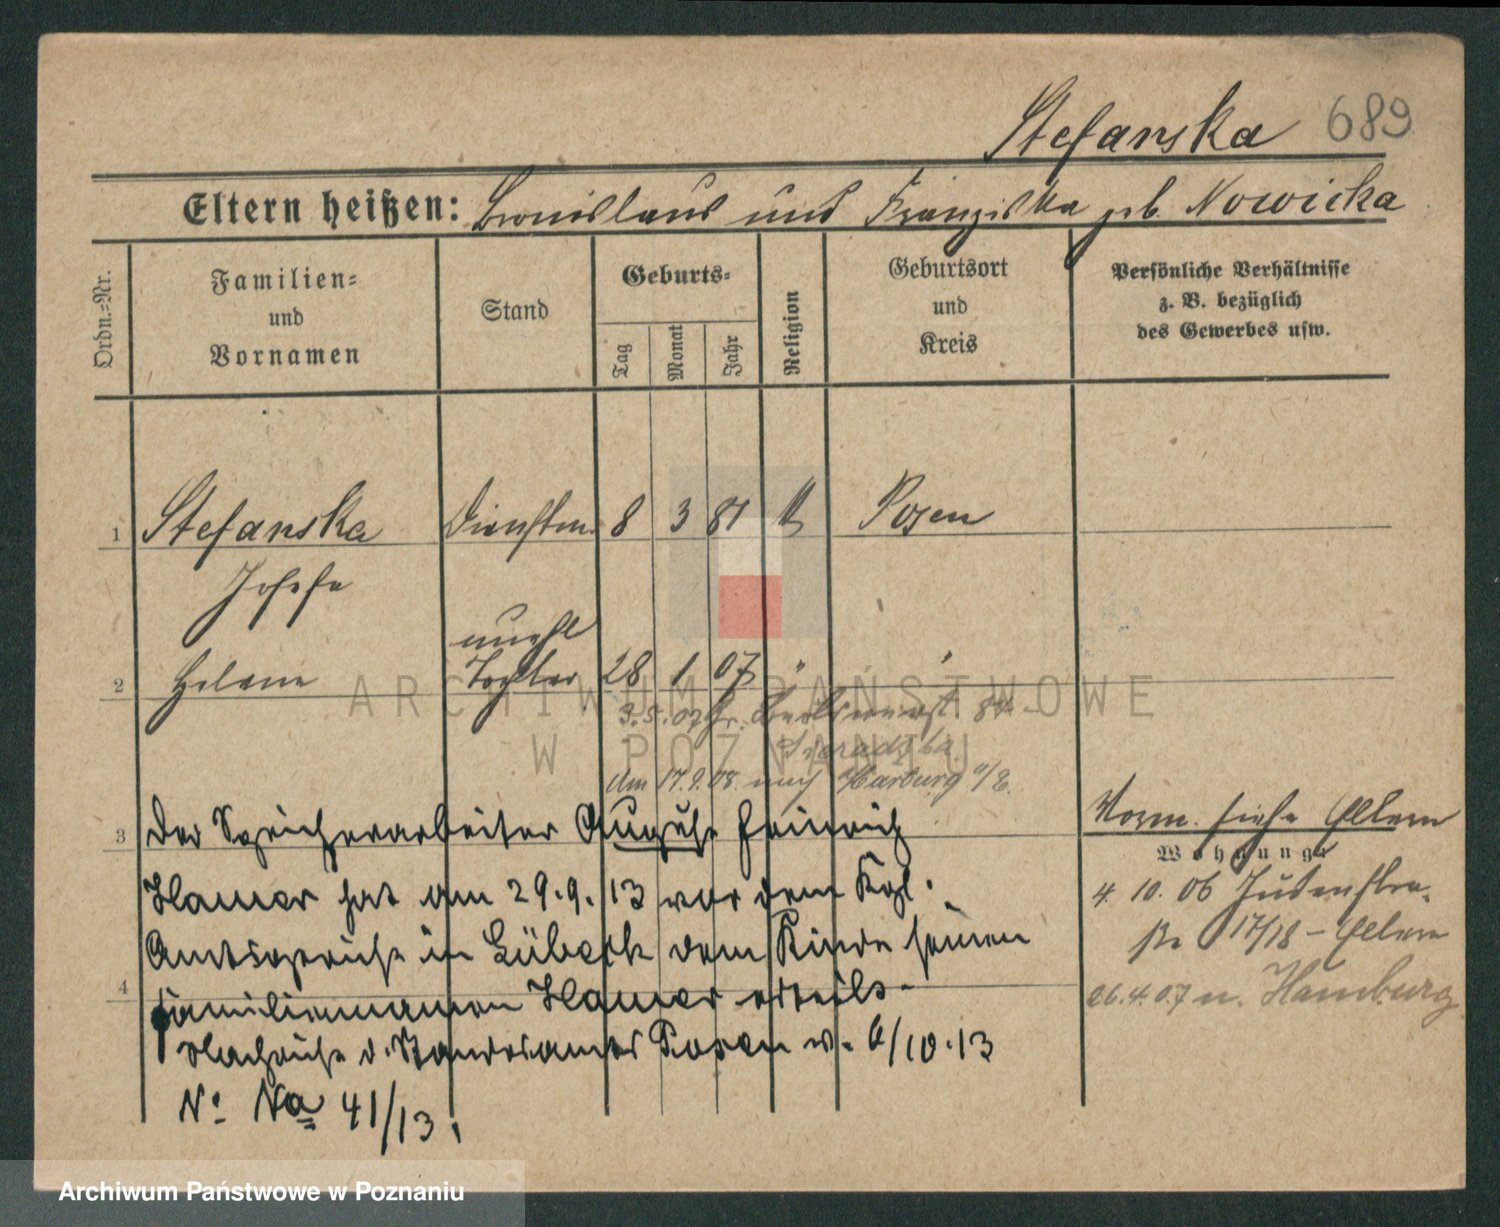 Stefanska 689
Eltern heißen: Bronislaus und Franziska geb. Nowicka
Ordn.=Nr.
Familien=
und
Vornamen
Stand
Geburts=
Tag
Monat
Jahr
Religion
Geburtsort
und
Kreis
Persönliche Verhältnisse
z. B. bezüglich
des Gewerbes usw.
1 Stefanska 8 3 81 Posen
Josefa
unehl
2 Helene Tochter 28 1 07 " "
3.5.07 Gr. 84
am 17.9.08. nach Harburg a/E.
3 Der Speicherarbeiter August Heinrich
Hamer hat am 29.9.13 vor dem Kgl.
Amtsgericht in Lübeck dem Kinde seinen
4 Familiennamen Hamer erteilt.
Nachricht d. Standesamtes Posen v. 6/10.13
No. Na 41/13.
Vorm. siehe Eltern
Wohnung:
4. 10. 06 Judenstra-
ße 17/18 - Eltern
26.4.07 n. Hamburg
ARCHIWUM PAŃSTWOWE
W POZNANIU
Archiwum Państwowe w Poznaniu